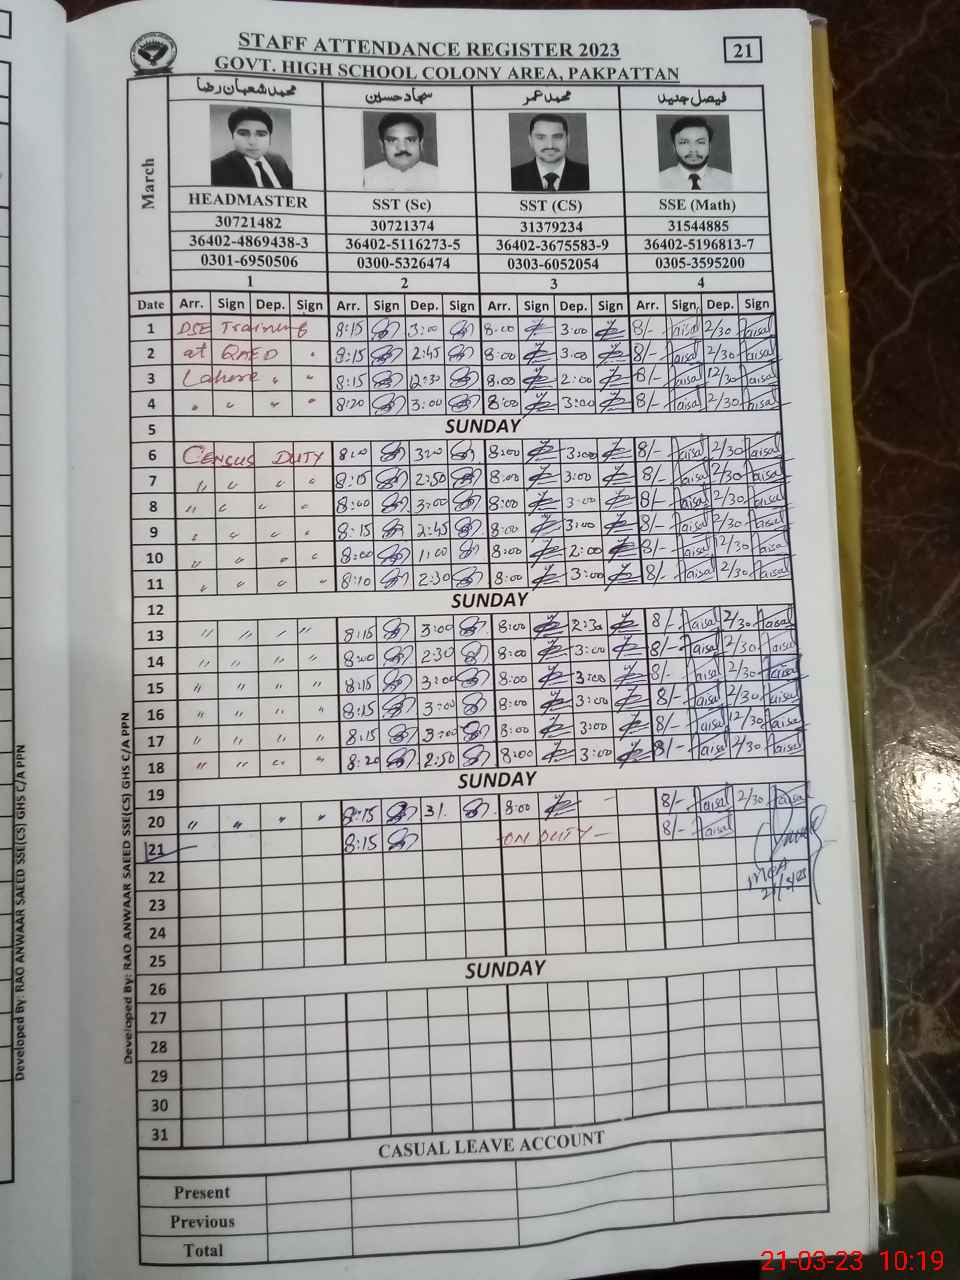 STAFF ATTENDANCE REGISTER 2023
21
GOVT. HIGH SCHOOL COLONY AREA, PAKPATTAN
March
محمد شعبان رضا سجاد حسین محمد عمر فیصل جنید
HEADMASTER SST (Sc) SST (CS) SSE (Math)
30721482 30721374 31379234 31544885
36402-4869438-3 36402-5116273-5 36402-3675583-9 36402-5196813-7
0301-6950506 0300-5326474 0303-6052054 0305-3595200
1 2 3 4
Date Arr. Sign Dep. Sign Arr. Sign Dep. Sign Arr. Sign Dep. Sign Arr. Sign Dep. Sign
1 DSE Training 8:15 3:00 8:00 3:00 8/- Faisal 2/30 Faisal
2 at QAED " 8:15 2:45 8:00 3:00 8/- Faisal 2/30 Faisal
3 Lahore " " 8:15 12:30 8:00 2:00 8/- Faisal 12/30 Faisal
4 " " " " 8:20 3:00 8:00 3:00 8/- Faisal 2/30 Faisal
5 SUNDAY
6 CENSUS DUTY 8:00 3:00 8:00 3:00 8/- Faisal 2/30 Faisal
7 " " " " 8:15 2:50 8:00 3:00 8/- Faisal 2/30 Faisal
8 " " " " 8:00 3:00 8:00 3:00 8/- Faisal 2/30 Faisal
9 " " " " 8:15 2:45 8:00 3:00 8/- Faisal 2/30 Faisal
10 " " " " 8:00 1:00 8:00 2:00 8/- Faisal 12/30 Faisal
11 " " " " 8:10 2:30 8:00 3:00 8/- Faisal 2/30 Faisal
12 SUNDAY
13 " " " " 8:15 3:00 8:00 2:30 8/- Faisal 2/30 Faisal
14 " " " " 8:00 2:30 8:00 3:00 8/- Faisal 2/30 Faisal
15 " " " " 8:15 3:00 8:00 3:00 8/- Faisal 2/30 Faisal
16 " " " " 8:15 3:00 8:00 3:00 8/- Faisal 2/30 Faisal
17 " " " " 8:15 3:00 8:00 3:00 8/- Faisal 12/30 Faisal
18 " " " " 8:20 2:50 8:00 3:00 8/- Faisal 2/30 Faisal
19 SUNDAY
20 " " " " 8:15 3/. 8:00 - 8/- Faisal 2/30 Faisal
21 8:15 ON DUTY - 8/- Faisal
22
23
24
25
26 SUNDAY
27
28
29
30
31
CASUAL LEAVE ACCOUNT
Present
Previous
Total
Developed By: RAO ANWAAR SAEED SSE(CS) GHS C/A PPN
Developed By: RAO ANWAAR SAEED SSE(CS) GHS C/A PPN
21-03-23 10:19